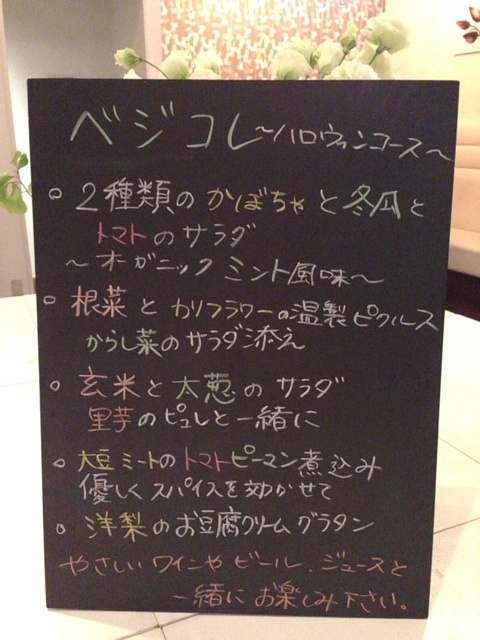 ベジコレ～ハロウィンコース～
○ 2種類のかぼちゃと冬瓜と
トマトのサラダ
～オーガニック ミント風味～
○ 根菜とカリフラワーの温製ピクルス
からし菜のサラダ添え
○ 玄米と太葱のサラダ
里芋のピュレと一緒に
○ 大豆ミートのトマトピーマン煮込み
優しくスパイスを効かせて
○ 洋梨のお豆腐クリームグラタン
やさしいワインやビール、ジュースと
一緒にお楽しみ下さい。